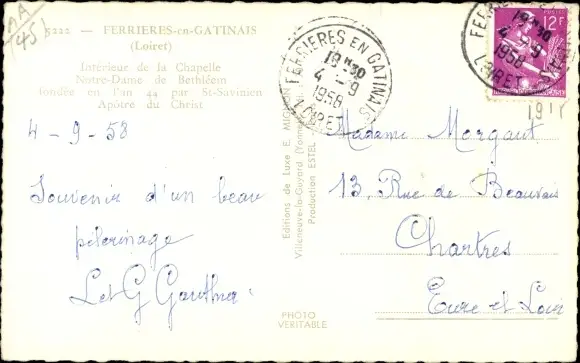 5222 - FERRIERES-en-GATINAIS
(Loiret)
Intérieur de la Chapelle
Notre-Dame de Bethléem
fondée en l'an 44 par St-Savinien
Apôtre du Christ
4-9-58
Souvenir d'un beau
pélerinage
L et G Gauthier
Editions de Luxe E. MIGNON
Villeneuve-la-Guyard (Yonne)
Production ESTEL
PHOTO
VERITABLE
FERRIERES EN GATINAIS
18 H30
4 - 9
1958
LOIRET
12F
POSTES
FERRIERES EN GATINAIS
18 H30
4 - 9
1958
LOIRET
Madame Morgant
13, Rue de Beauvais
Chartres
Eure et Loir